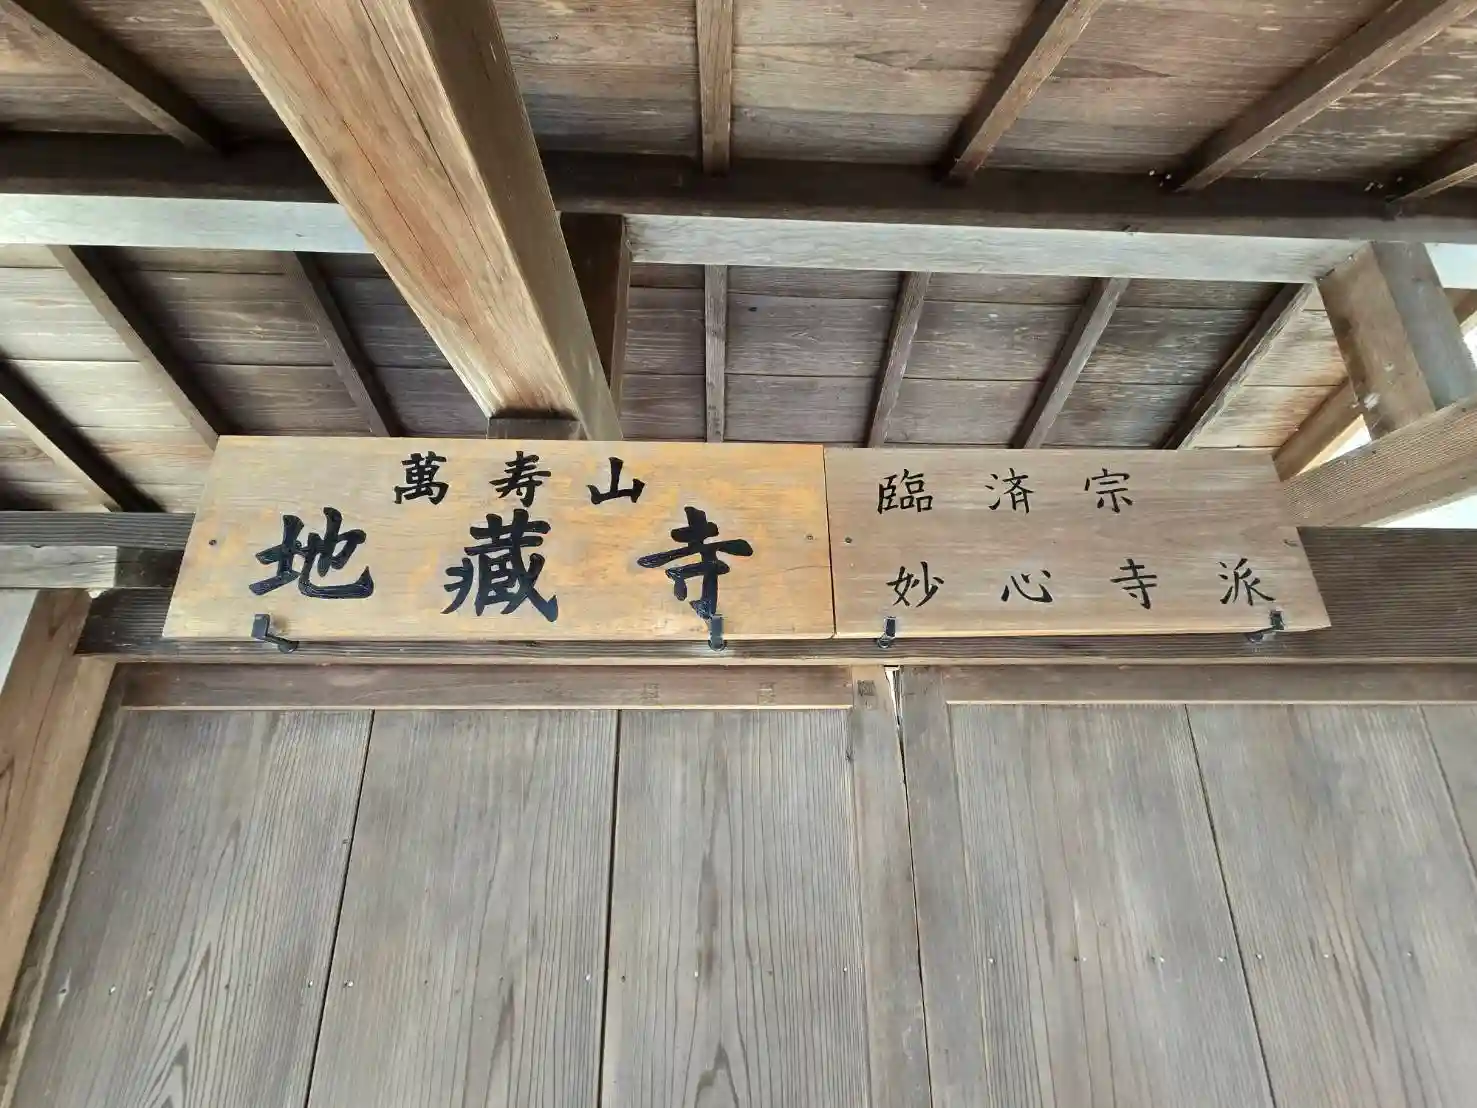 萬寿山
地蔵寺
臨済宗
妙心寺派